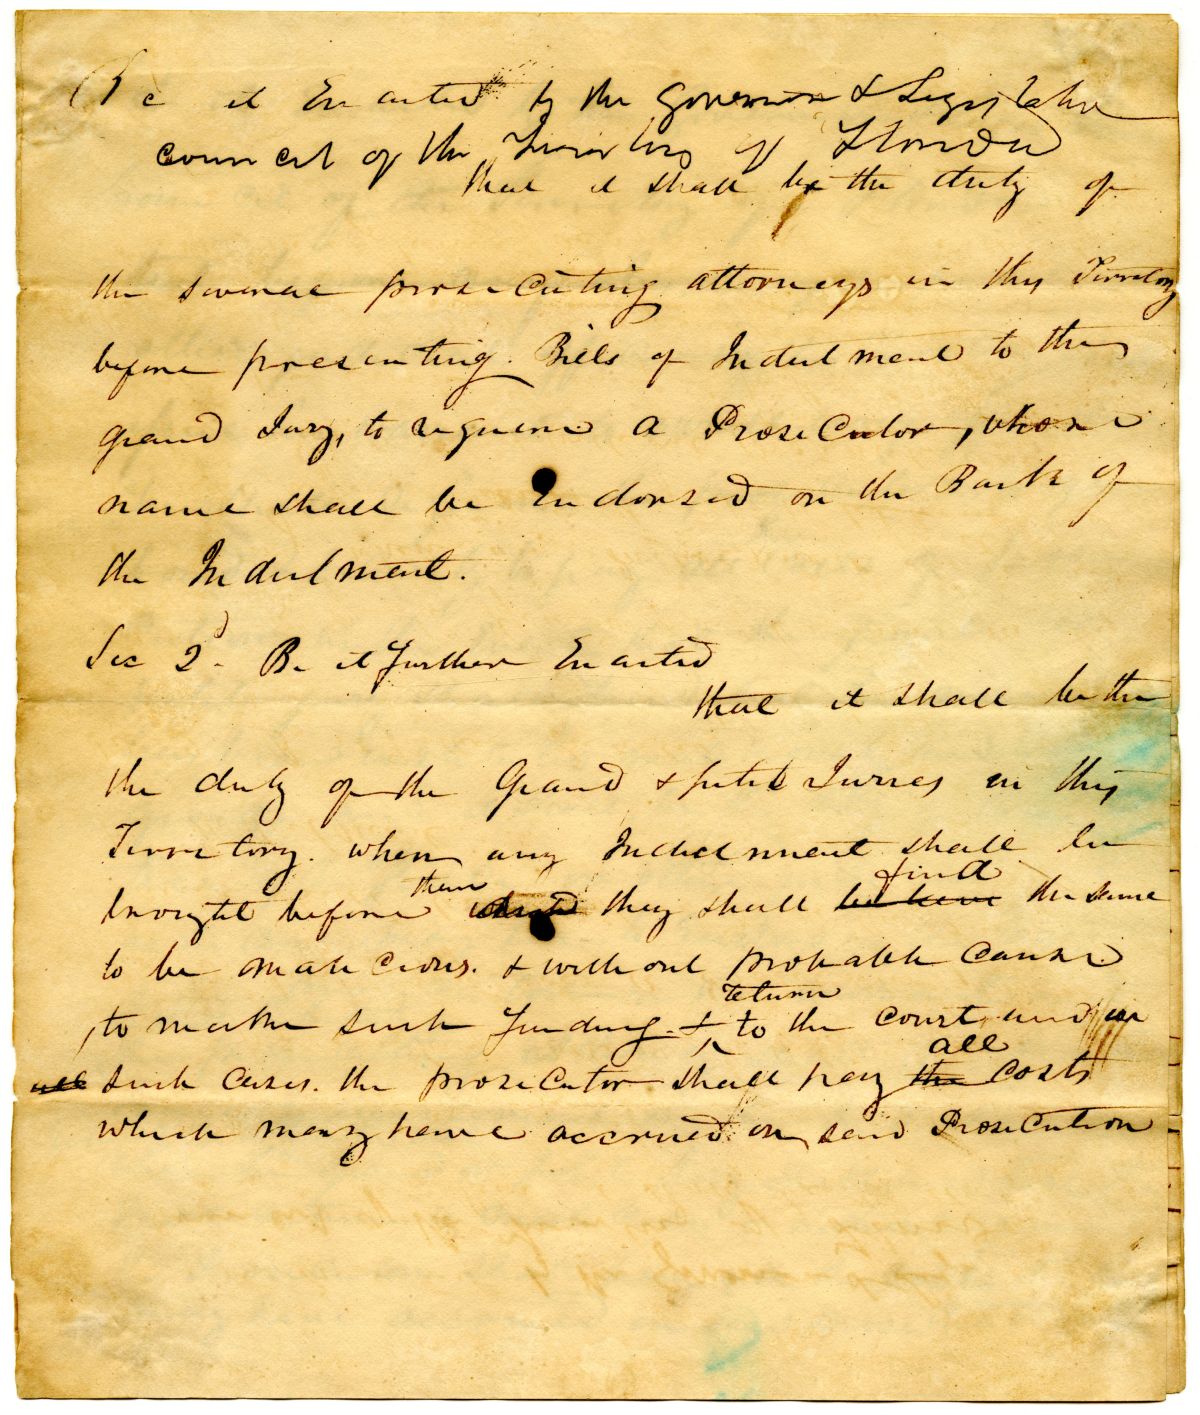 Be it Enacted by the Governor & Legislative
council of the Territory of Florida
that it shall be the duty of
the several prosecuting attorneys in this Territory
before presenting Bills of Indictment to the
grand Jury, to require a Prosecutor, whose
name shall be Endorsed on the Back of
the Indictment.
Sec 2d. Be it further Enacted
that it shall be the
the duty of the Grand & petit Jurres in this
Territory. when any Indictment shall be
brought before them they shall be leive find the same
to be malicious. & without probable cause
to make such finding & return to the court, and in
all such cases. the prosecutor shall pay the all costs
which may have accrued on said Prosecution